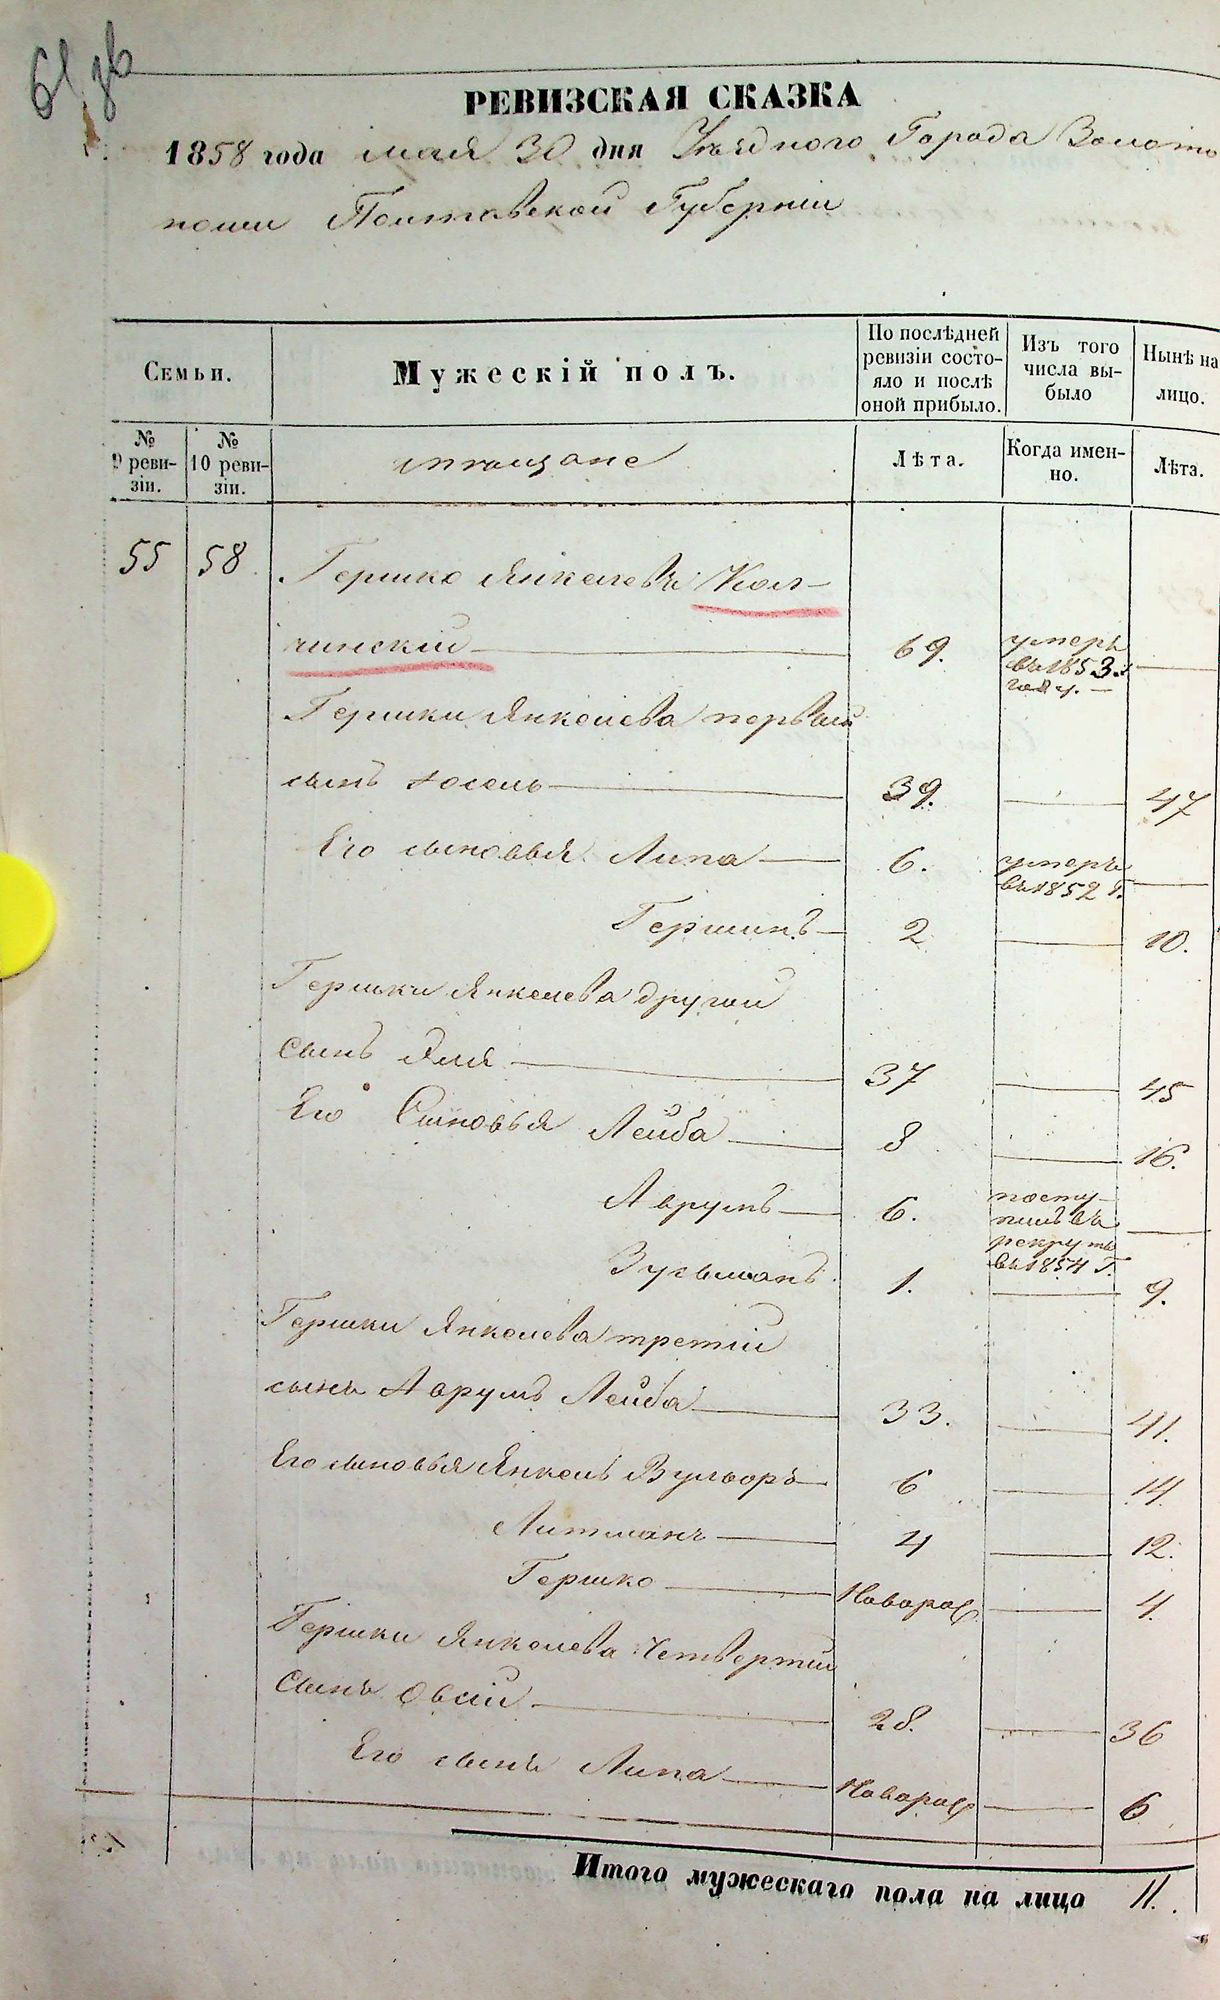 61 зв
РЕВИЗСКАЯ СКАЗКА
1858 года мая 30 дня Уѣзднаго Города Золото
ноши Полтавской Губерніи
Семьи.
Мужескій полъ.
По послѣдней ревизіи состо-
яло и послѣ оной прибыло.
Изъ того числа вы-
было
Нынѣ на лицо.
№ 9 реви-
зіи.
№ 10 реви-
зіи.
мѣщане
Лѣта.
Когда имен-
но.
Лѣта.
55 58 Гершко Янкелевъ Кол-
чинскій 69. умеръ въ 1853. году.
Гершки Янкелева первый
сынъ Іосель 39. 47
Его сыновья Липа 6. умеръ въ 1852 г.
Гершинъ 2 10.
Гершки Янкелева другой
Сынъ Эля 37 45
Его Сыновья Лейба 8 16.
Аврумъ 6. посту-
пилъ въ рекруты въ 1854 г.
Зусьманъ 1. 9.
Гершки Янкелева третій
сынъ Аврумъ Лейба 33. 41.
Его сыновья Янкель Вульворъ 6 14.
Литманъ 4 12.
Гершко Новорож. 4.
Гершки Янкелева Четвертый
Сынъ Овсій 28. 36
Его сынъ Липа Новорож 6
Итого мужескаго пола на лицо 11.